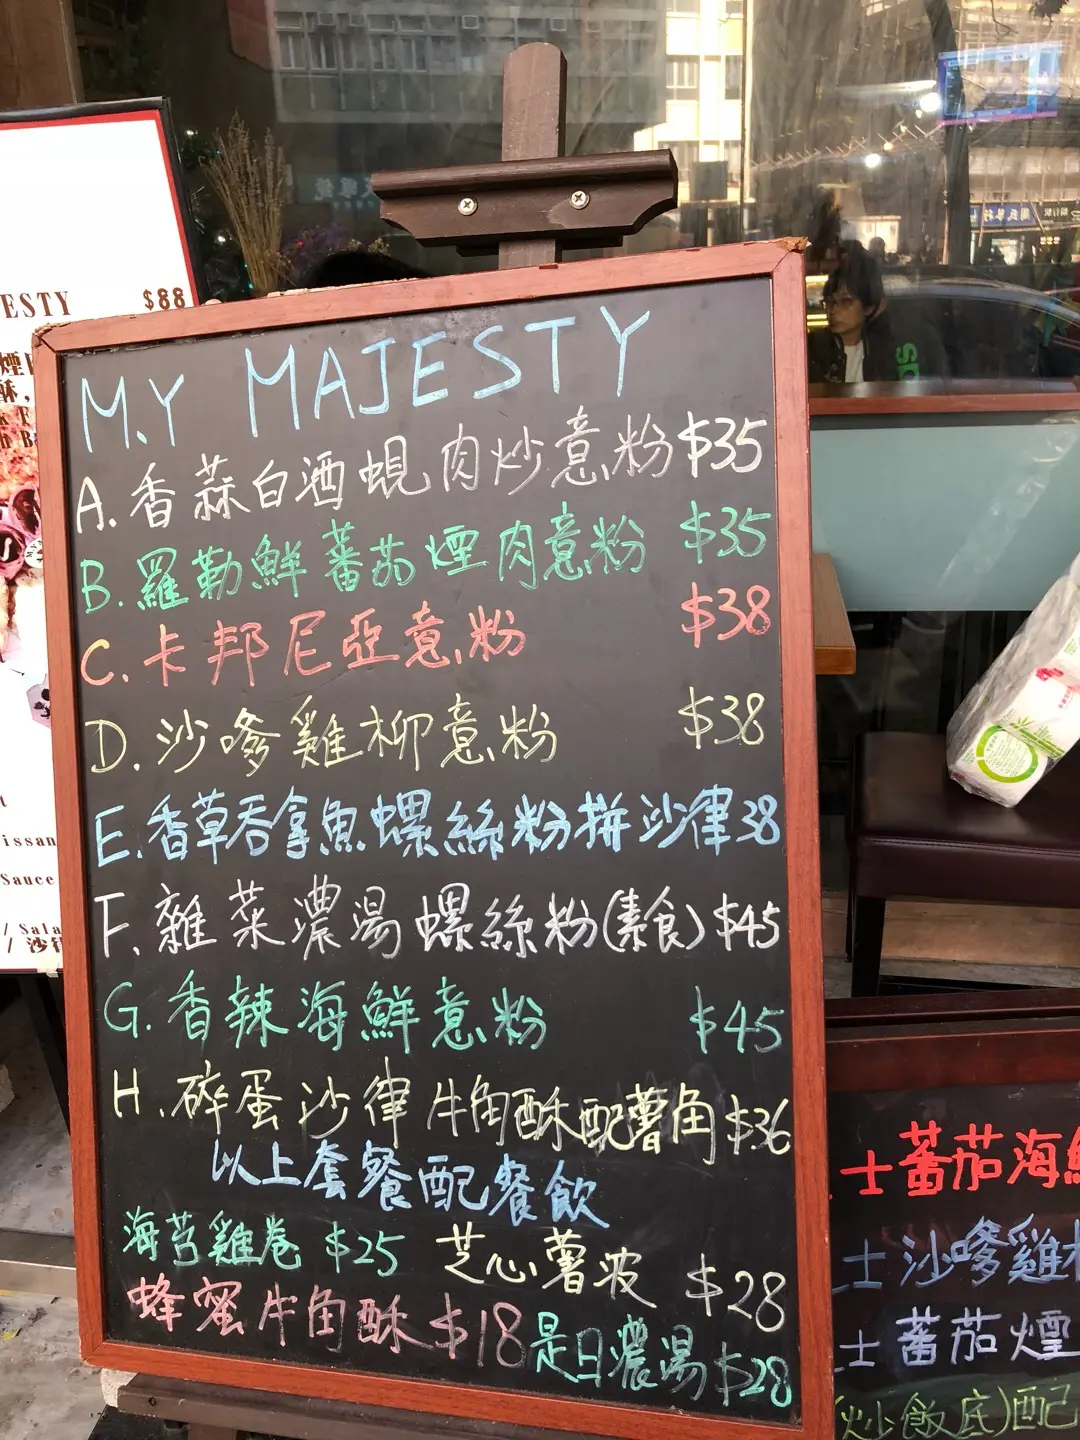 MY MAJESTY
A. 香蒜白酒蜆肉炒意粉 $35
B. 羅勒鮮蕃茄煙肉意粉 $35
C. 卡邦尼亞意粉 $38
D. 沙嗲雞柳意粉 $38
E. 香草吞拿魚螺絲粉拼沙律 38
F. 雜菜濃湯螺絲粉(素食) $45
G. 香辣海鮮意粉 $45
H. 碎蛋沙律牛角酥配薯角 $36
以上套餐配餐飲
海苔雞卷 $25 芝心薯波 $28
蜂蜜牛角酥 $18 是日濃湯 $28
ESTY $88
煙
酥,
issan
Sauce
/ Sala
/ 沙律
士蕃茄海鮮
士沙嗲雞
士蕃茄煙
(炒飯底)配